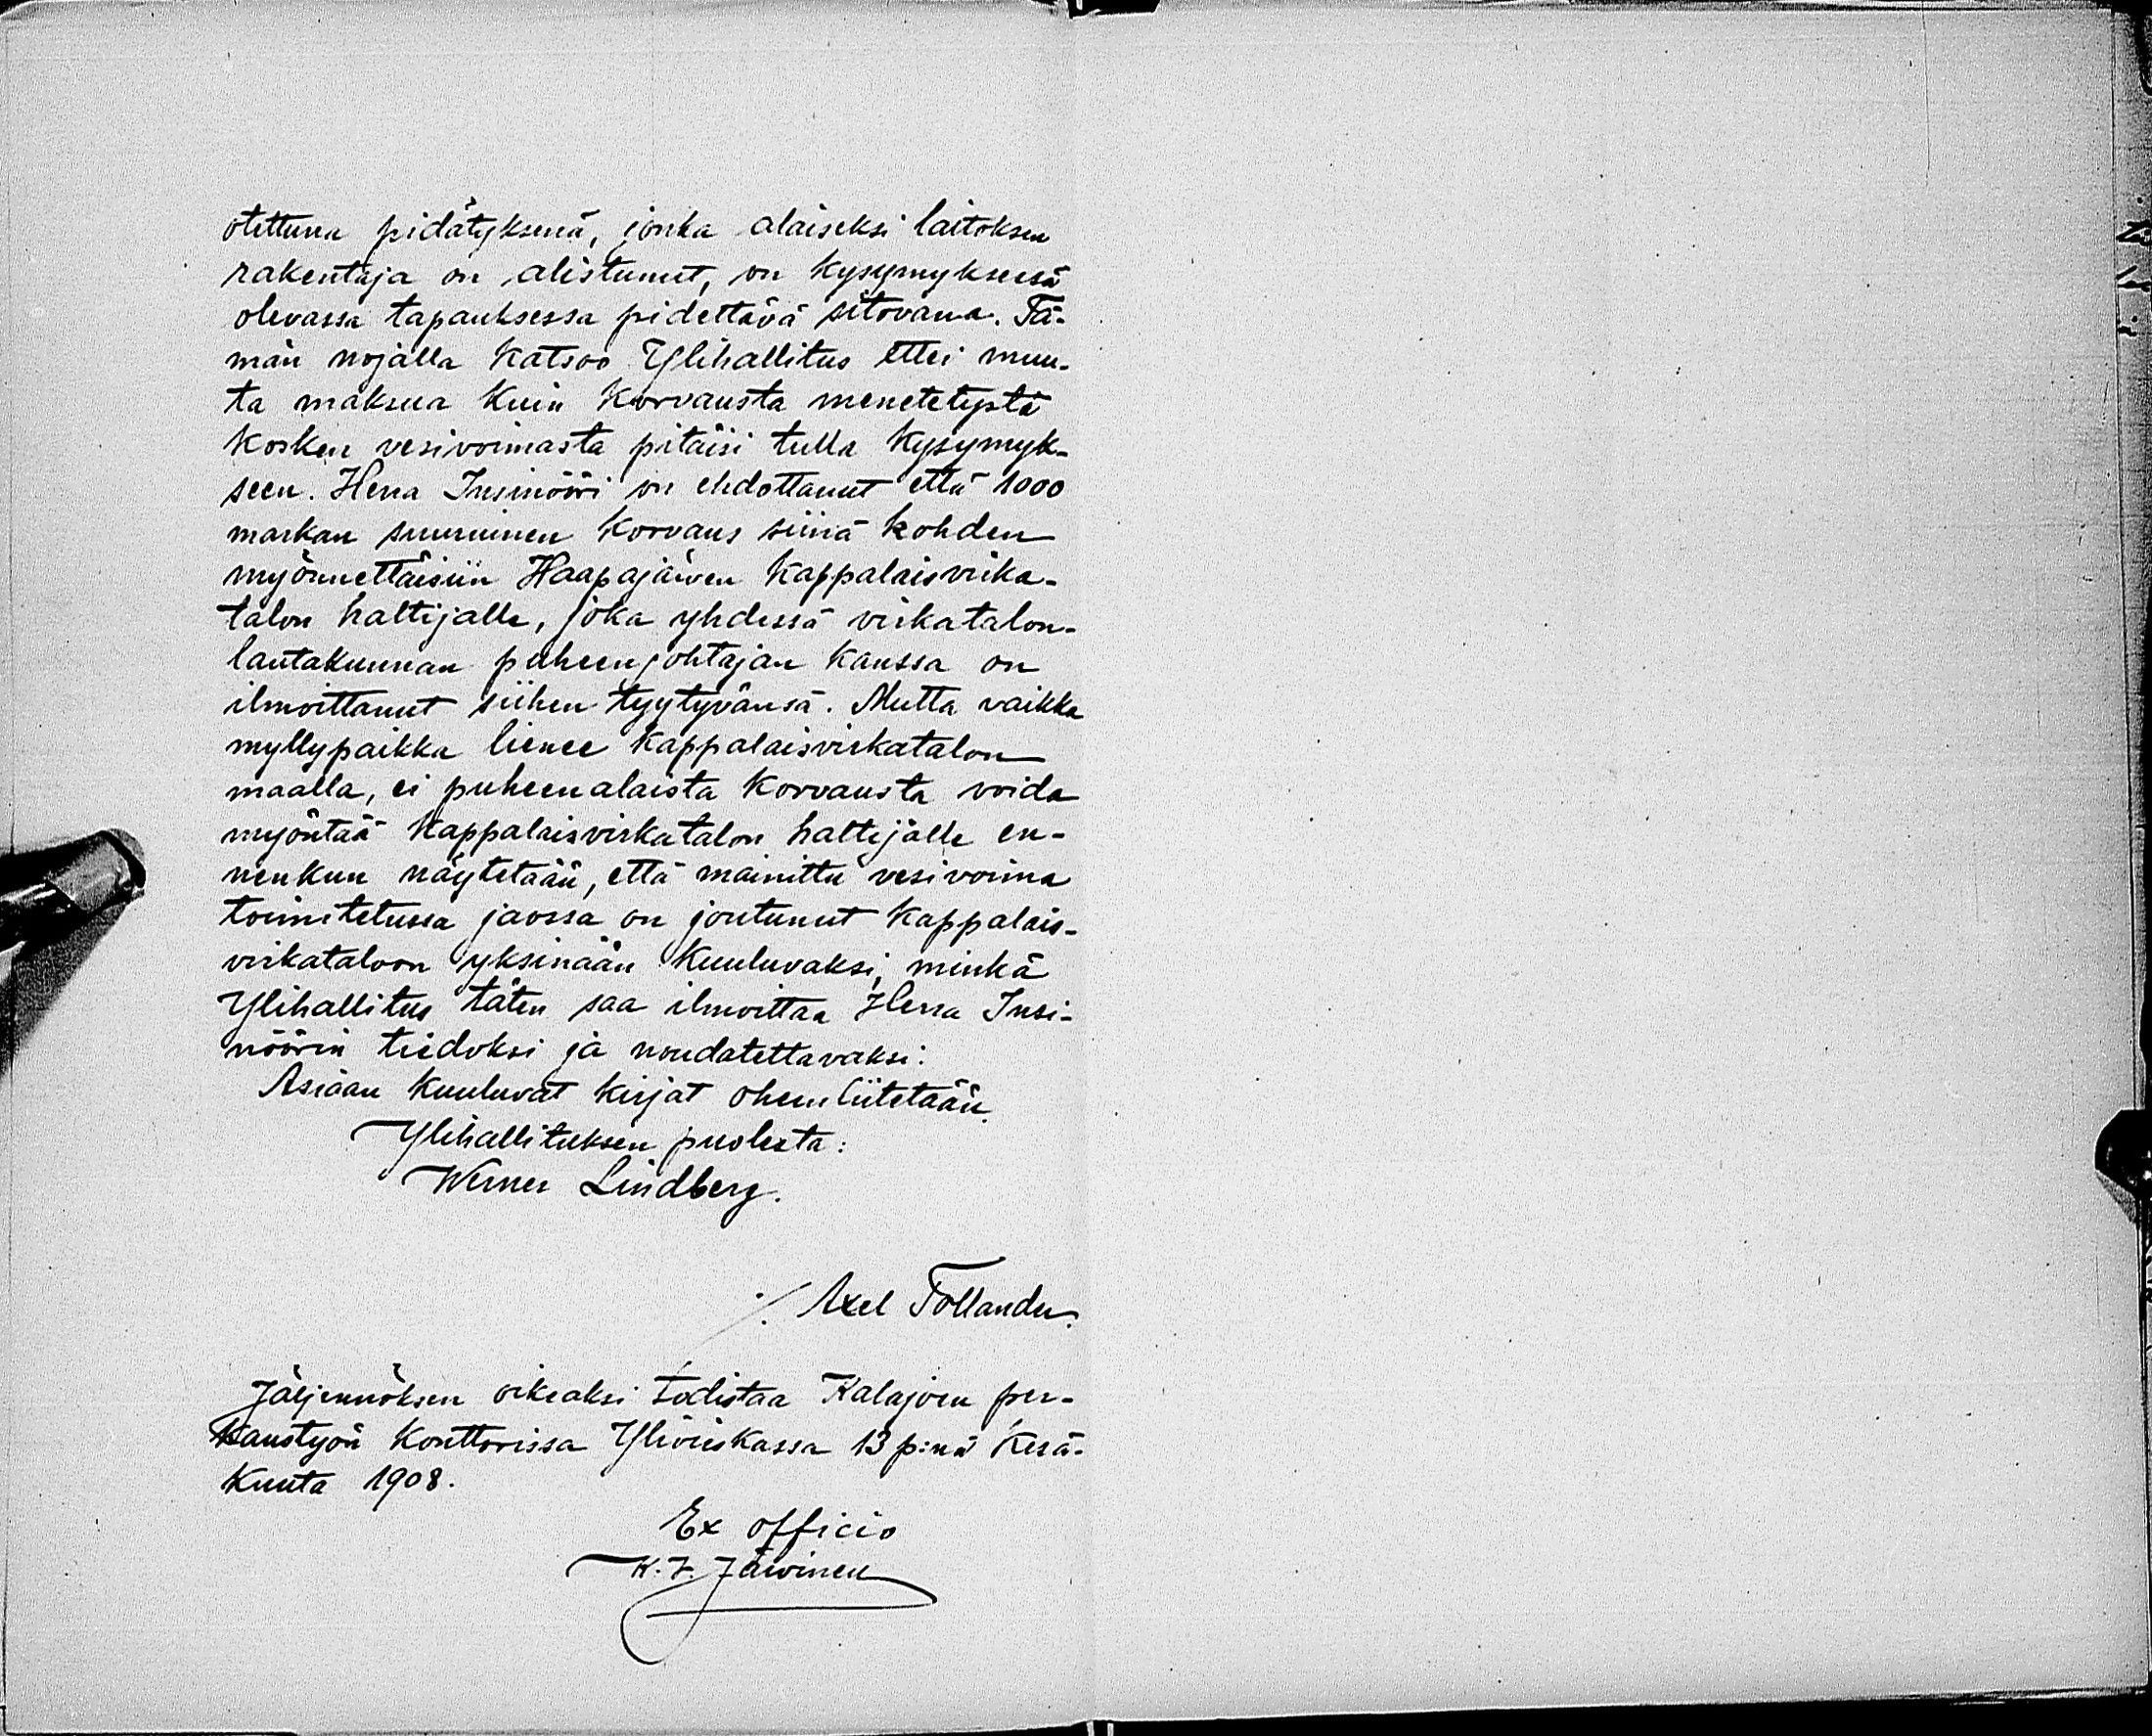 otettuna pidätyksenä, jonka alaiseksi laitoksen
rakentaja on alistunut, on kysymyksessä
olevassa tapauksessa pidettävä sitovana. Tä-
män nojalla katsoo Ylihallitus ettei muu-
ta maksua kuin korvausta menetetystä
kosken vesivoimasta pitäisi tulla kysymyk-
seen. Herra Insinööri on ehdottanut että 1000
markan suuruinen korvaus siinä kohden
myönnettäisiin Haapajärven kappalaisvirka-
talon haltijalle, joka yhdessä virkatalon-
lautakunnan puheenjohtajan kanssa on
ilmoittanut siihen tyytyvänsä. Mutta vaikka
myllypaikka lienee kappalaisvirkatalon
maalla, ei puheenalaista korvausta voida
myöntää kappalaisvirkatalon haltijalle en-
nenkun näytetään, että mainittu vesivoima
toimitetussa jaossa on joutunut kappalais-
virkataloon yksinään kuuluvaksi; minkä
Ylihallitus täten saa ilmoittaa Herra Insi-
nöörin tiedoksi ja noudatettavaksi.
Asiaan kuuluvat kirjat oheenliitetään.
Ylihallituksen puolesta:
Werner Lindberg.
./. Axel Tollander.
Jäljennöksen oikeaksi todistaa Kalajoen per-
kaustyön konttorissa Ylivieskassa 13 p:nä Kesä-
kuuta 1908.
Ex officio
K. J. Järvinen